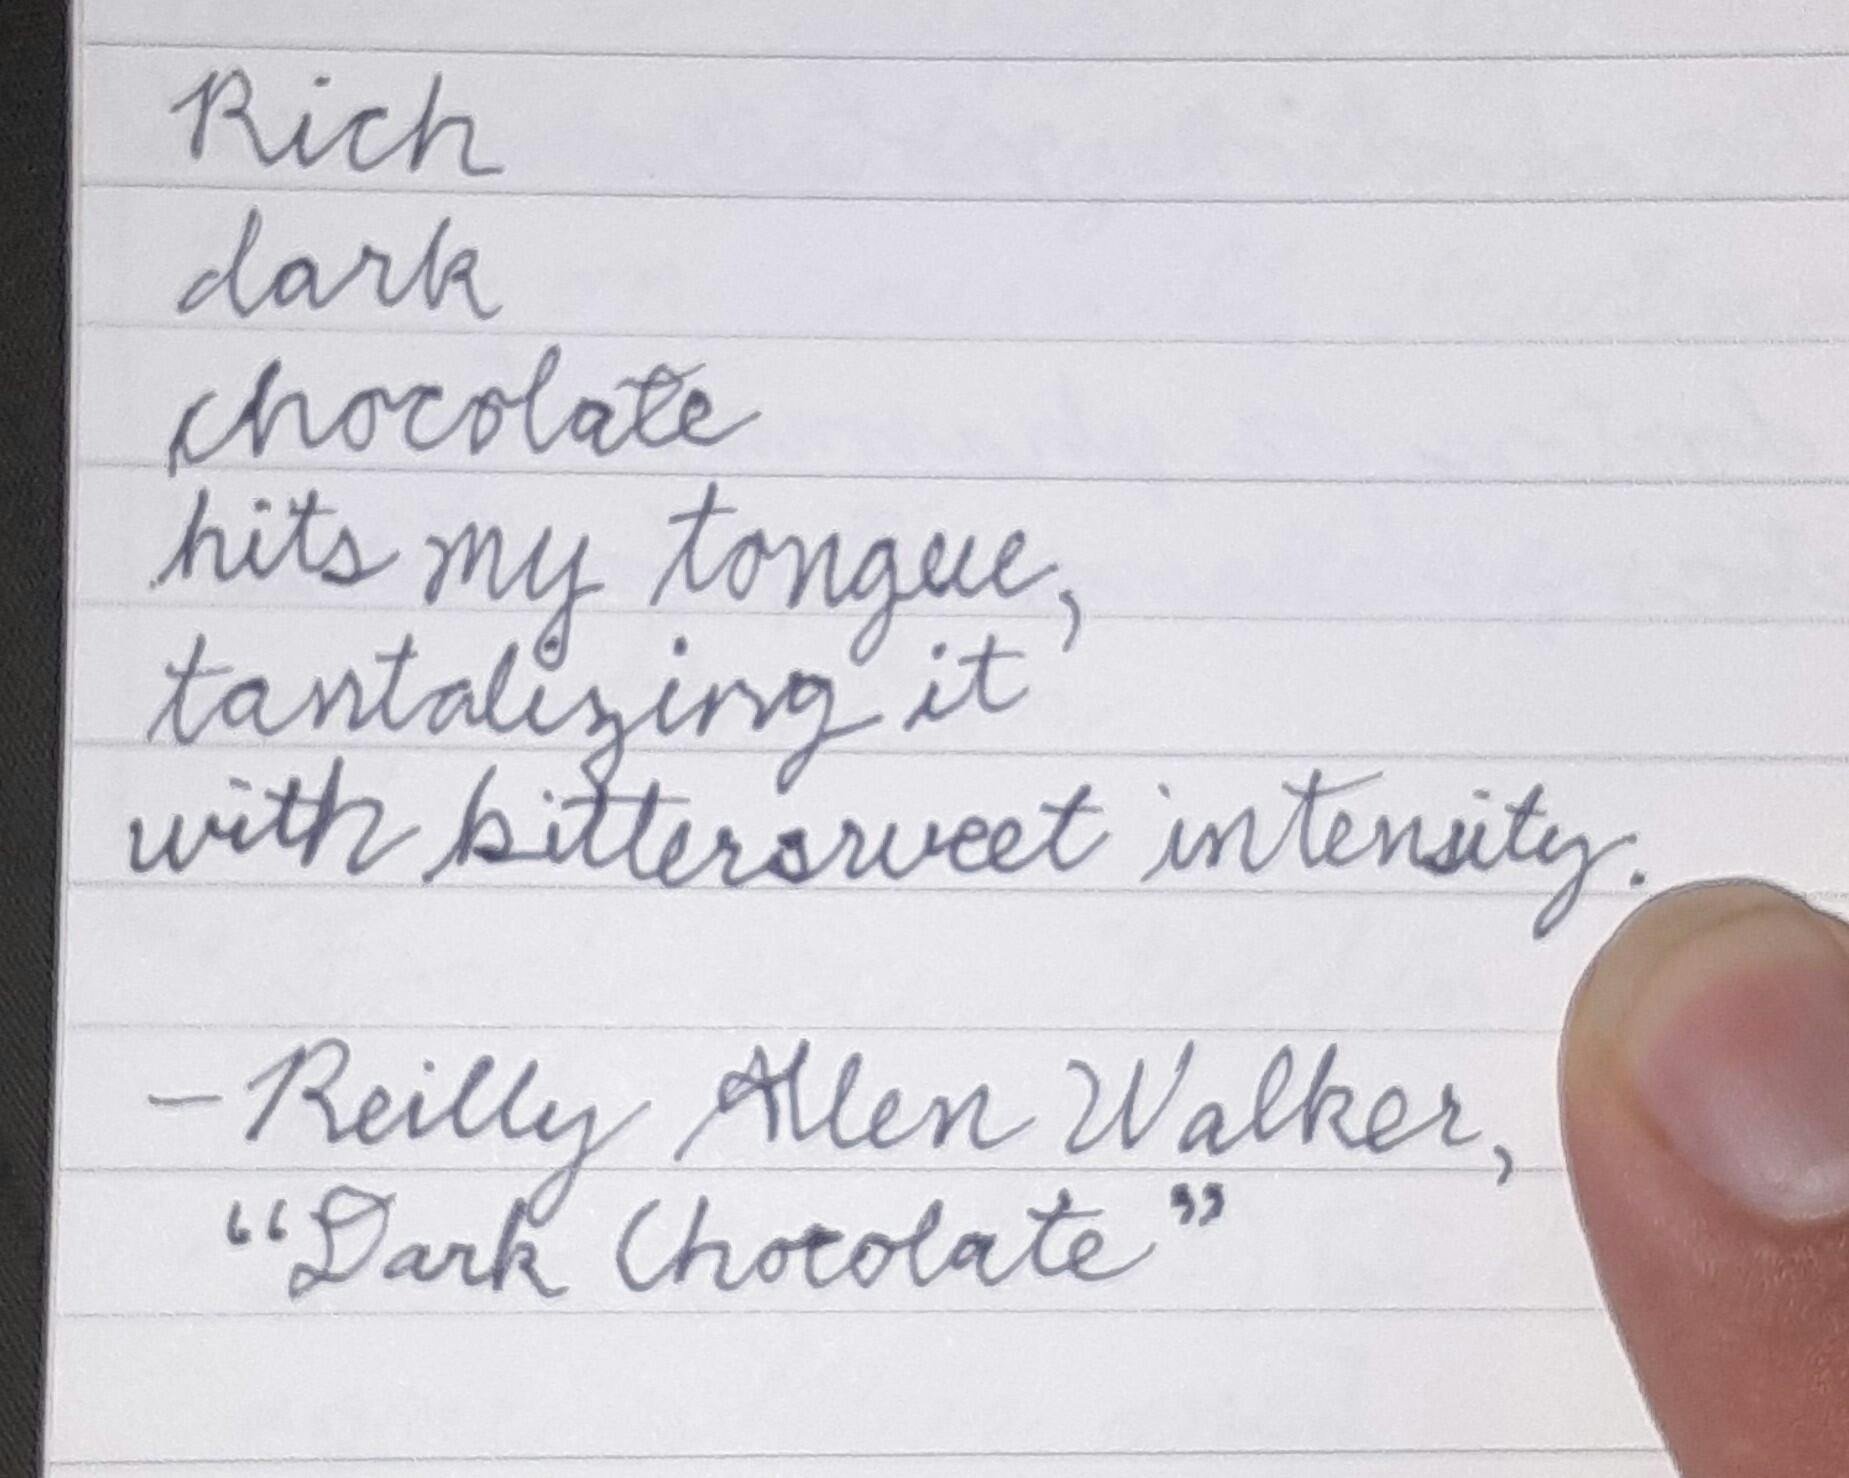 Rich
dark
chocolate
hits my tongue,
tantalizing it
with bittersweet intensity.
– Reilly Allen Walker,
“Dark Chocolate”